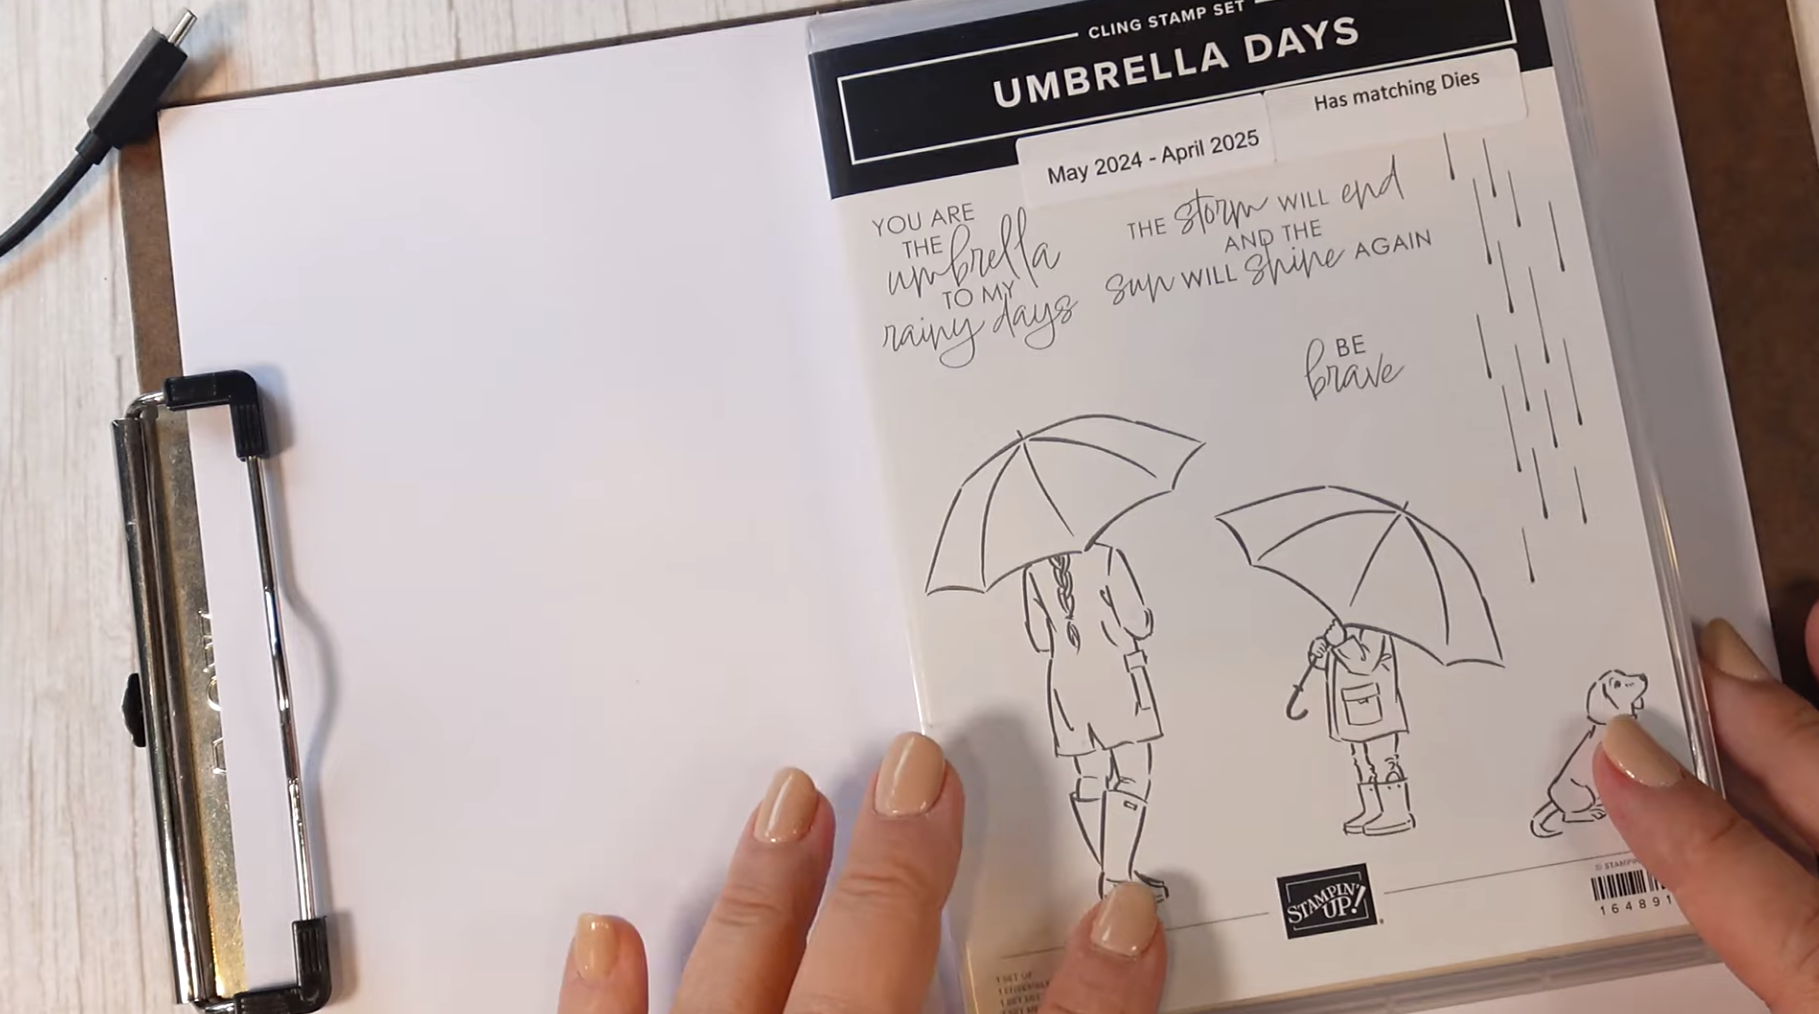 CLING STAMP SET
UMBRELLA DAYS
Has matching Dies
May 2024 - April 2025
YOU ARE
THE umbrella
TO MY
rainy days
THE storm WILL end
AND THE
sun WILL shine AGAIN
BE
brave
STAMPIN'
UP!
© STAMPIN
164891
1 SET OF